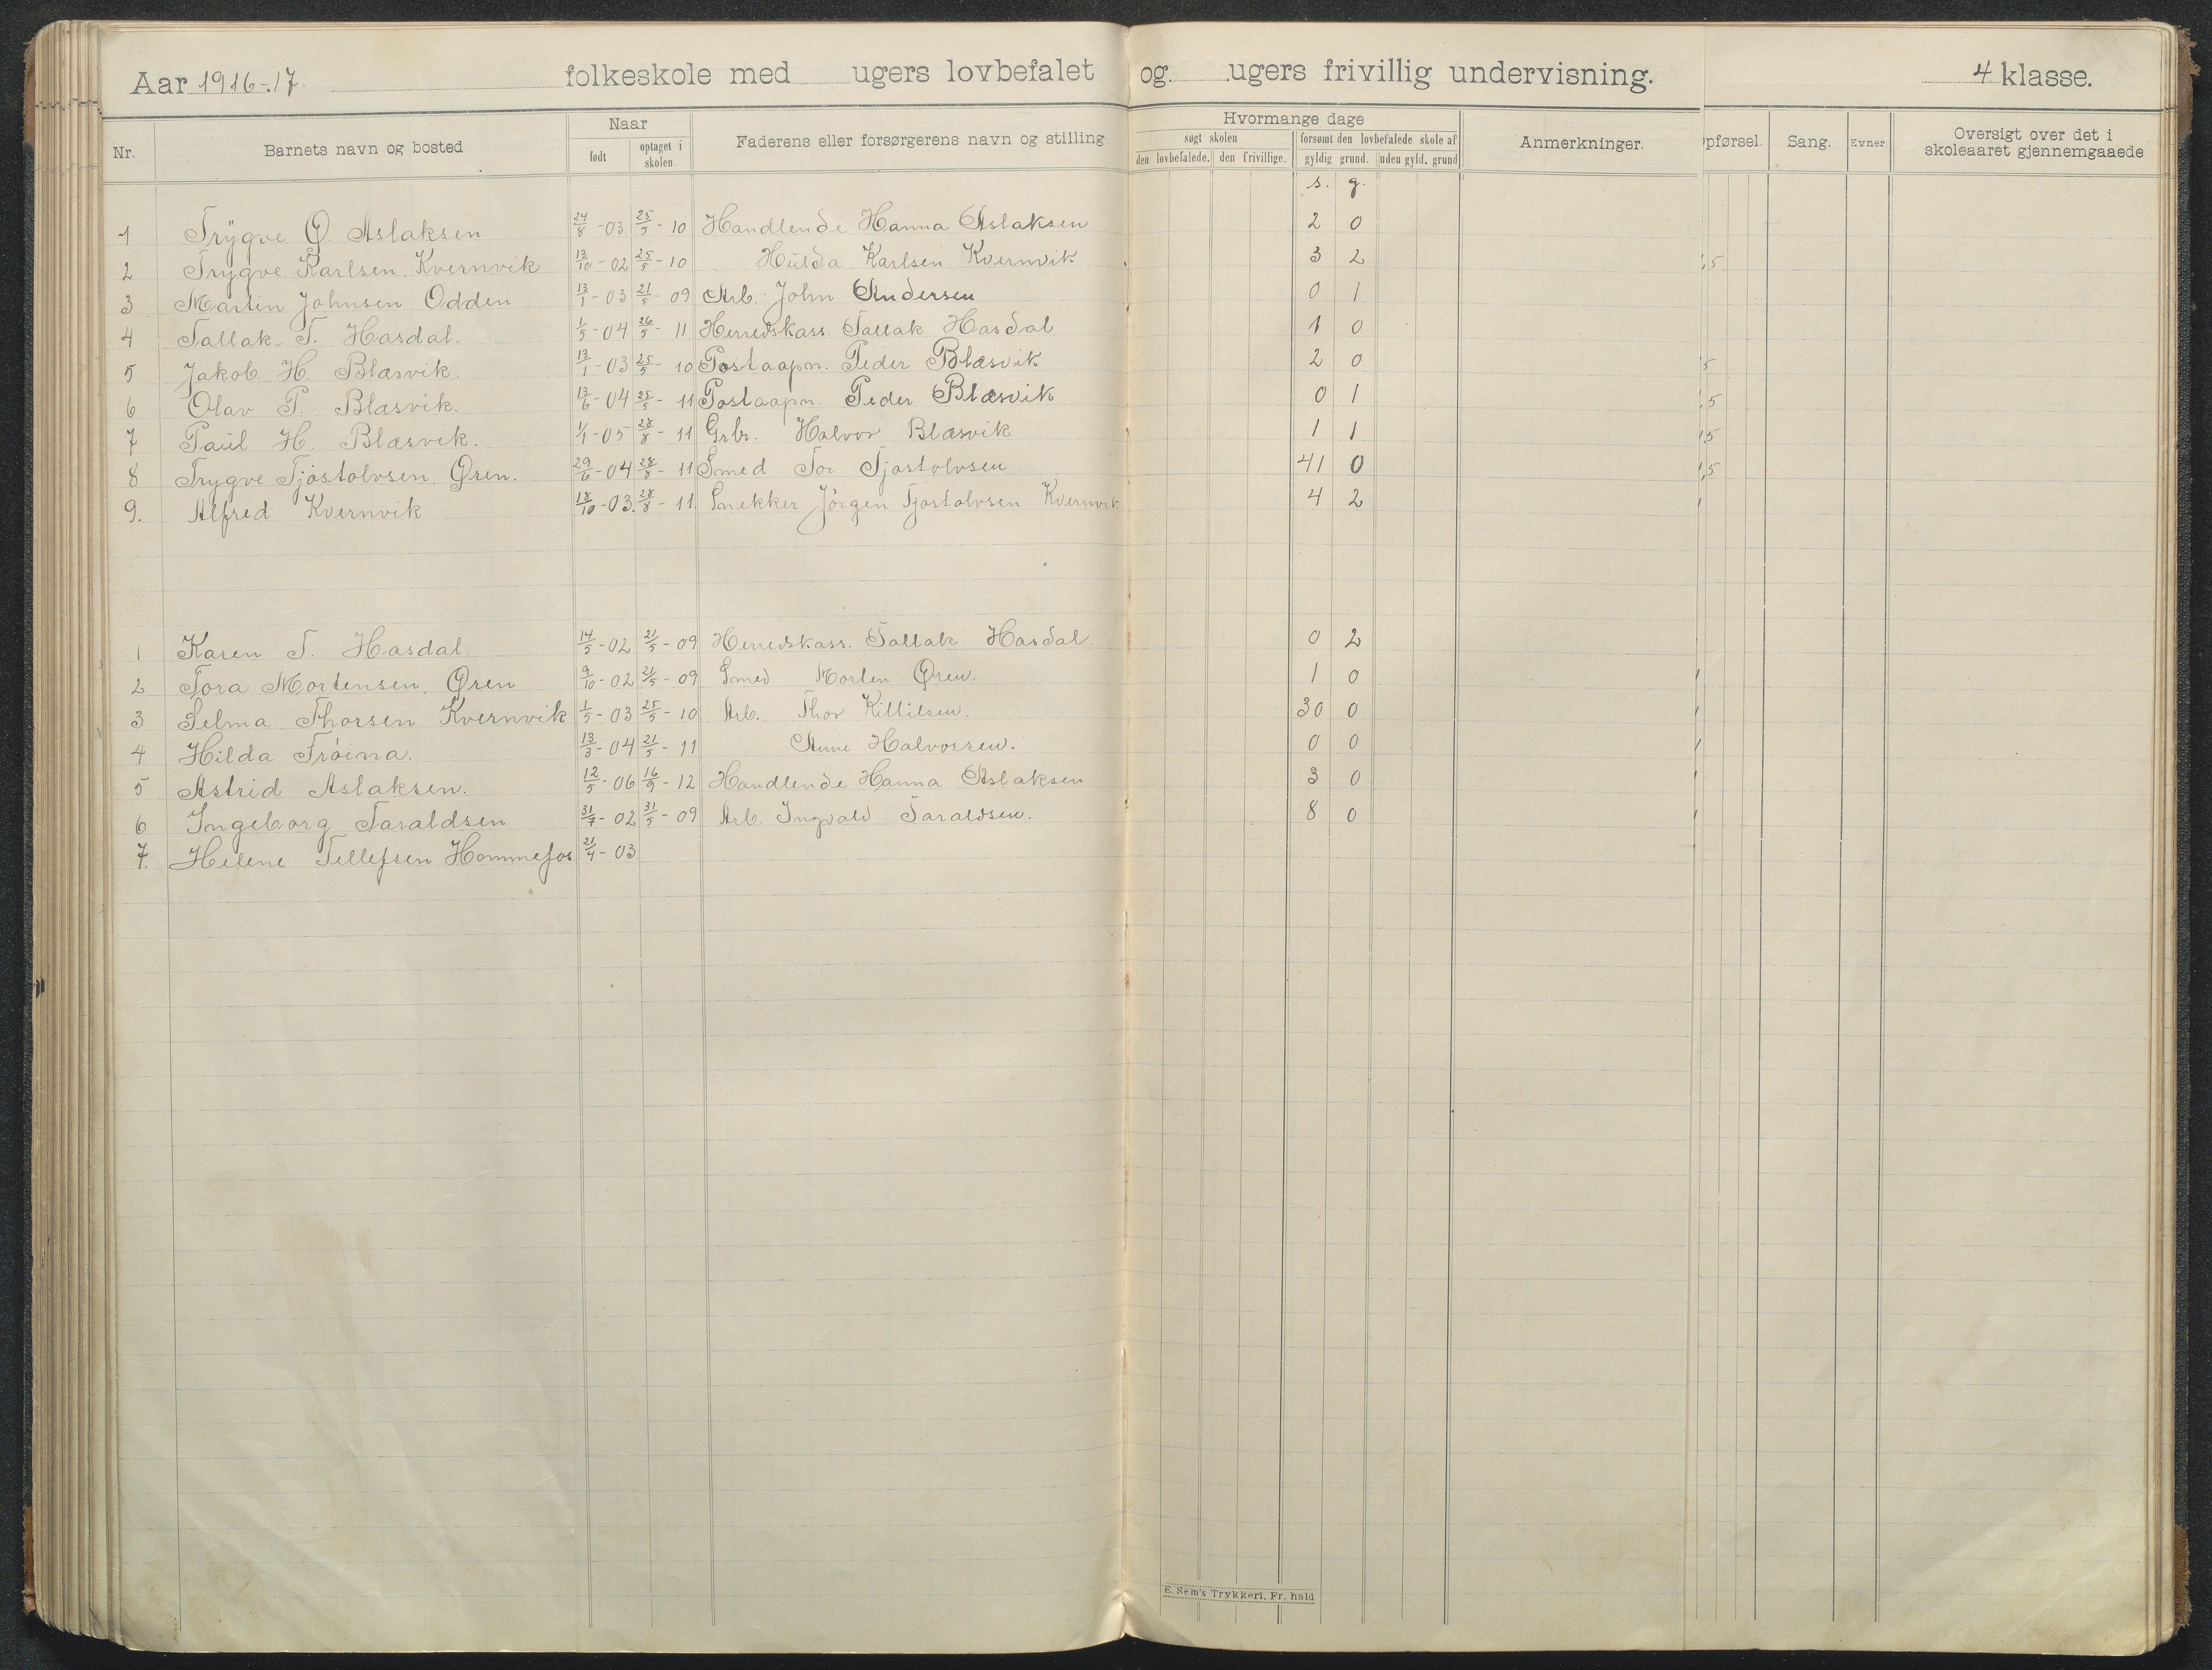 Aar 1916-17. folkeskole med ugers lovbefalet og ugers frivillig undervisning. 4 klasse.
Nr. Barnets navn og bosted Naar født optaget i skolen. Faderens eller forsørgerens navn og stilling Hvormange dage søgt skolen den lovbefalede. den frivillige. forsømt den lovbefalede skole af gyldig grund. uden gyld. grund Anmerkninger. pførsel. Sang. Evner Oversigt over det i skoleaaret gjennemgaaede
s. g.
1 Trygve O. Aslaksen 24/8 -03 25/5 - 10 Handlende Hanna Aslaksen 2 0
2 Trygve Karlsen Kvernvik 13/10 - 02 25/5 - 10 Hulda Karlsen Kvernvik 3 2 ,5
3 Martin Johnsen Odden 13/1 - 03 21/5 - 09 Arb. John Andersen 0 1
4 Tallak T. Hasdal. 1/5 - 04 26/5 - 11 Herredskass. Tallak Hasdal 1 0
5 Jakob H. Blæsvik. 13/1 - 03 25/5 - 10 Postaapn. Peder Blæsvik 2 0 5
6 Olav P. Blæsvik. 13/6 - 04 25/5 - 11 Postaapn. Peder Blæsvik 0 1 ,5
7 Paul H. Blæsvik. 1/1 - 05 28/8 - 11 Grbr. Halvor Blæsvik 1 1 1,5
8 Trygve Tjøstolvsen Øren. 29/6 - 04 28/8 - 11 Smed Tor Tjøstolvsen 41 0 ,5
9. Alfred Kvernvik 18/10 - 03. 28/8 - 11. Snekker Jørgen Tjøstolvsen Kvernvik 4 2
1 Karen T. Hasdal. 14/5 - 02 21/5 - 09 Herredskass. Tallak Hasdal. 0 2
2 Tora Mortensen, Øren 9/10 - 02 21/5 - 09 Smed Morten Øren. 1 0
3 Selma Thorsen Kvernvik 1/5 - 03 25/5 - 10 Arb. Thor Killilsen. 30 0
4 Hilda Frøina. 13/3 - 04 21/5 - 11 Anne Halvorsen. 0 0
5 Astrid Aslaksen. 12/5 - 06 16/9 - 12 Handlende Hanna Aslaksen 3 0
6 Ingeborg Taraldsen 31/7 - 02 31/5 - 09 Arb. Ingvald Taraldsen. 8 0
7. Helene Tellefsen Hommefos 21/4 - 03
E. Sem's Trykkeri, Fr. hald